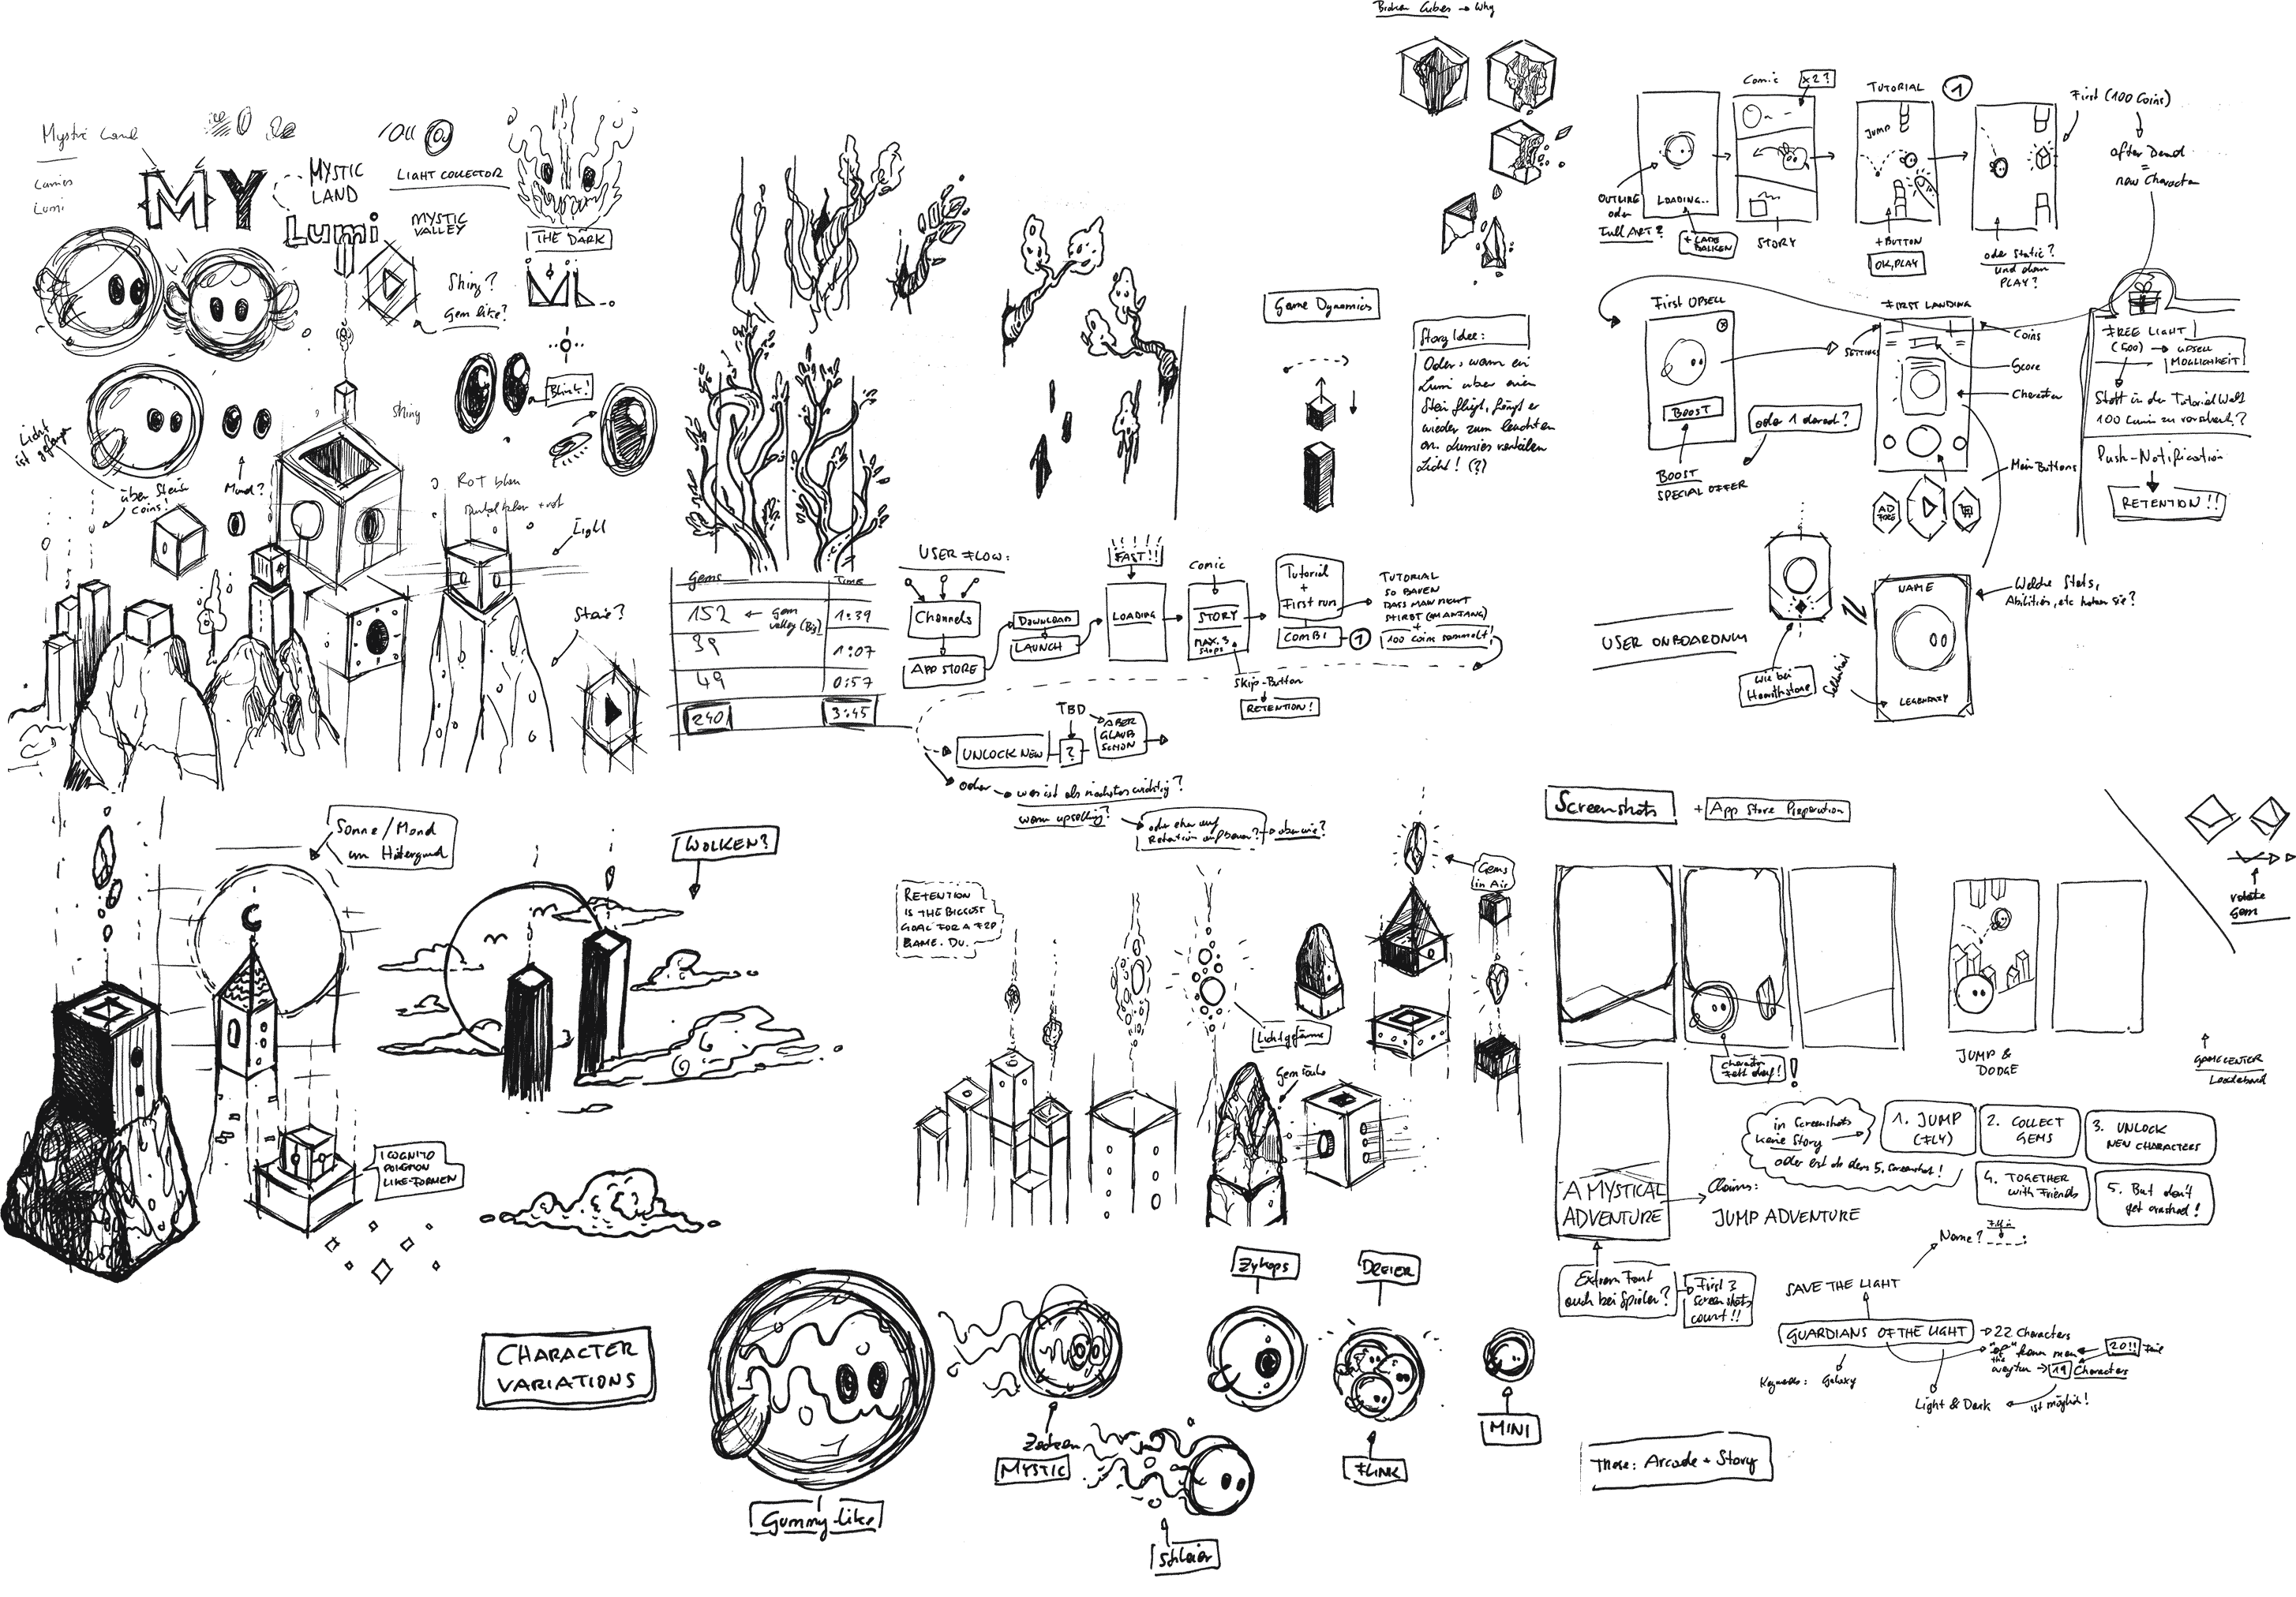 Broken Cubes → Why
Mystic Land
Lumies
Lumi
MY
MYSTIC
LAND
Lumi
LIGHT COLLECTOR
MYSTIC
VALLEY
THE DARK
Shiny?
Gem like?
ML
Blink!
Shiny
Licht
ist gefangen
über Stein
Coins!
Mund?
Rot blau
Dunkelblau + rot
Light
Steine?
Gems
TIME
152 ← gem
valley (Big)
1:39
39
1:07
49
0:57
240
3:45
Game Dynamics
Story Idee:
Oder, wann ein
Lumi über einen
Stein fliegt, fängt er
wieder zum leuchten
an. Lumies verteilen
Licht! (?)
USER FLOW:
Channels
APP STORE
DOWNLOAD
LAUNCH
FAST!!
LOADING
Comic
STORY
MAX. 3
Steps
Skip-Button
RETENTION!
Tutorial
+
First run
COMBI
1
TUTORIAL
SO BAUEN
DASS MAN NICHT
STIRBT (AM ANFANG)
+
100 Coins sammelt!
TBD
UNLOCK NEW
?
ABER
GLAUB
SCHON
oder
was ist als nächstes wichtig?
wann upselling?
oder eher auf
Retention aufbauen?
aber wie?
OUTLINE
oder
Full ART?
LOADING..
+ LADE
BALKEN
Comic
x2?
STORY
TUTORIAL
1
JUMP
+ BUTTON
OK, PLAY
oder static?
und dann
PLAY?
First (100 Coins)
after Dead
=
new Character
First UPSELL
BOOST
BOOST
SPECIAL OFFER
oder 1 danach?
FIRST LANDING
SETTINGS
Coins
Score
Character
Main Buttons
AD
FREE
FREE LIGHT
(500) → UPSELL
MÖGLICHKEIT
Statt in der Tutorial Welt
100 Lumi zu verschenken?
Push-Notification
RETENTION!!
USER ONBOARDING
Wie bei
Hearthstone
Seltenheit
NAME
LEGENDARY
Welche Stats,
Abilities, etc haben sie?
Sonne/Mond
im Hintergrund
WOLKEN?
INCOGNITO
POKEMON
LIKE-FORMEN
RETENTION
IS THE BIGGEST
GOAL FOR A F2P
GAME. DU.
Gems
in Air
Lichtgefäme
Gem Säule
Screenshots
+ App Store Preparation
rotate
Gem
Character
fett drauf!
!
JUMP &
DODGE
GAMECENTER
Leaderboard
A MYSTICAL
ADVENTURE
Claims:
JUMP ADVENTURE
in Screenshots
keine Story
oder erst ab dem 5. Screenshot!
1. JUMP
(FLY)
2. COLLECT
GEMS
3. UNLOCK
NEW CHARACTERS
4. TOGETHER
with Friends
5. But don't
get crashed!
Extrem Font
auch bei Spielen?
First 3
Screenshots
count!!
Name?
SAVE THE LIGHT
GUARDIANS OF THE LIGHT
→ 22 Characters
"of" kann man
the
20!!
19
Characters
Keywords: Galaxy
Light & Dark
ist möglich!
These: Arcade + Story
CHARACTER
VARIATIONS
Gummy-like
Zacken
MYSTIC
Schleier
Zyklops
DREIER
FLINK
MINI